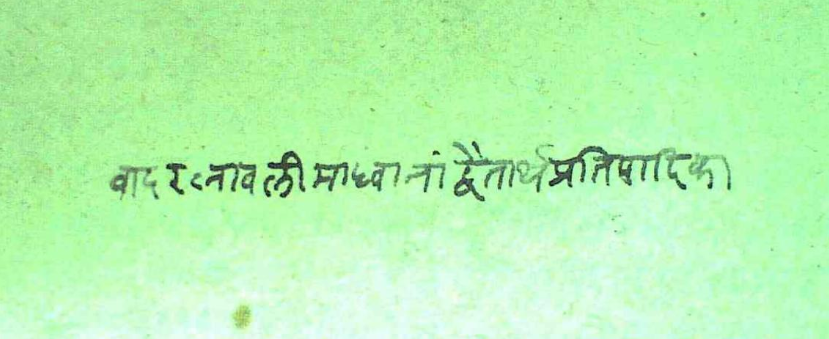 वादरत्नावली माध्वानां द्वैतार्थप्रतिपादिका